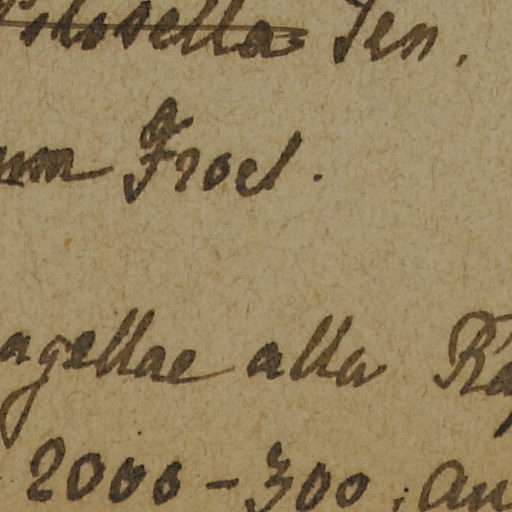 Pilosella Ten.
um Froel.
agellae alla Ra
2000 - 300; Au